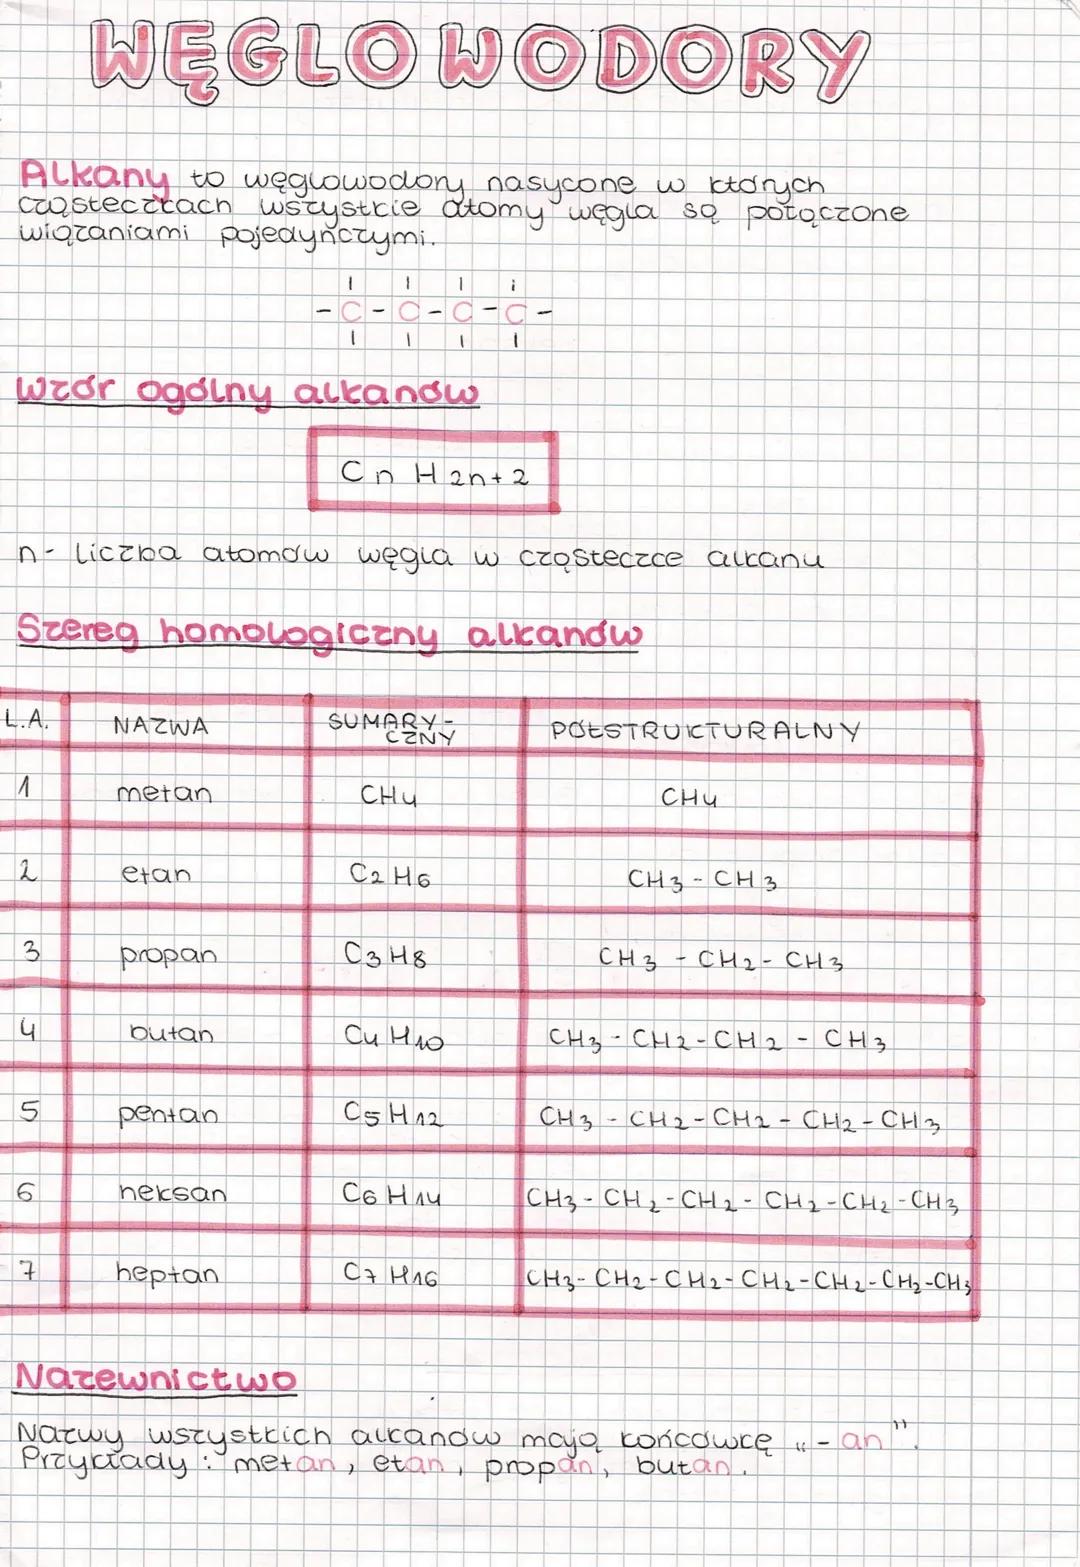 WĘGLOWODORY
Alkany to węglowodory nasycone w których
cząsteczkach wszystkie atomy węgla są połączone
wiązaniami pojedyńczymi.
- C - C - C - C -
Wzór ogólny alkanów
Cn H 2n+2
n- liczba atomów węgla w cząsteczce alkanu
Szereg homologiczny alkanów
L.A. NAZWA SUMARY- PÓŁSTRUKTURALNY
CZNY
1 metan CH4 CH4
2 etan C2H6 CH3 - CH3
3 propan C3H8 CH3 - CH2 - CH3
4 butan C4H10 CH3 - CH2 - CH2 - CH3
5 pentan C5H12 CH3 - CH2 - CH2 - CH2 - CH3
6 heksan C6H14 CH3 - CH2 - CH2 - CH2 - CH2 - CH3
7 heptan C7H16 CH3 - CH2 - CH2 - CH2 - CH2 - CH2 - CH3
Nazewnictwo
Nazwy wszystkich alkanów mają końcówkę „-an”.
Przykłady: metan, etan, propan, butan.